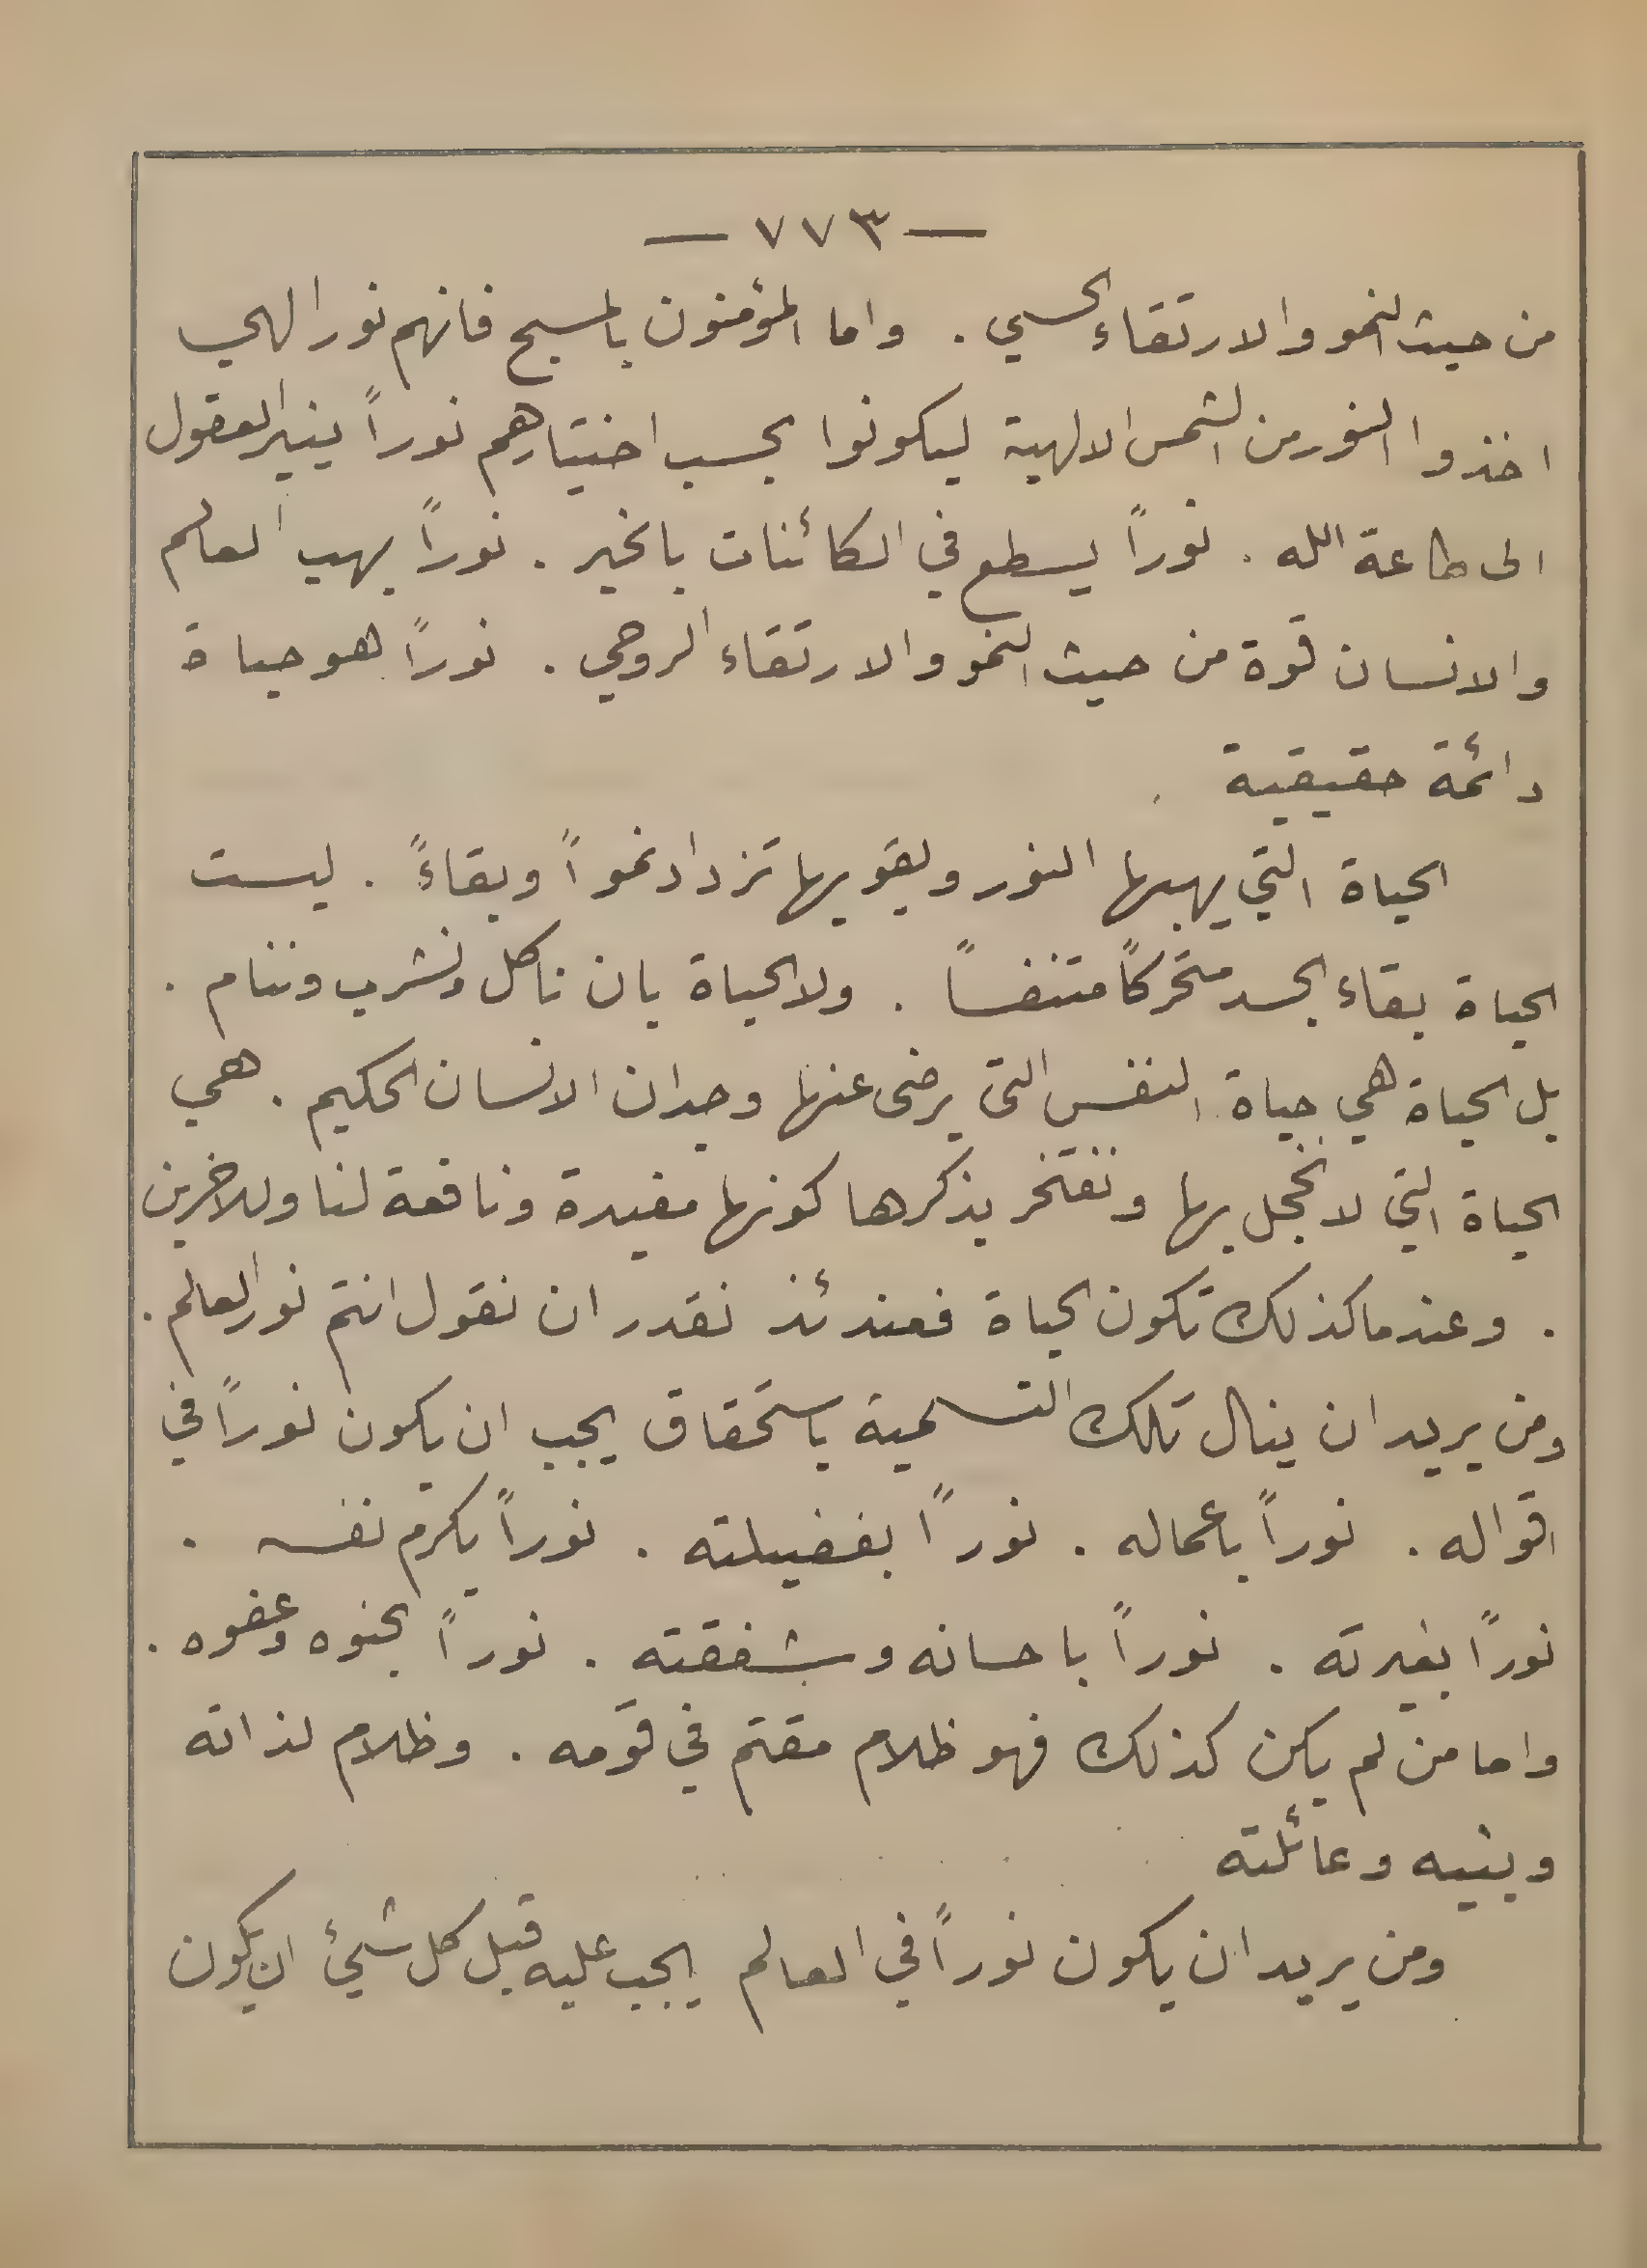 — ٧٧٣ —
من حيث النمو والارتقاء الحسي . واما المؤمنون بالمسيح فانهم نور الهي
اخذوا النور من الشمس الالهية ليكونوا بحسب اختيارهم نوراً ينير العقول
الى طاعة الله . نوراً يسطع في الكائنات بالخير . نوراً يهب العالم
والانسان قوة من حيث النمو والارتقاء الروحي . نوراً هو حياة
دائمة حقيقية
الحياة التي يهبها النور ويقويها تزداد نمواً وبقاءً . ليست
الحياة بقاء الجسد متحركاً متنفساً . ولا الحياة بان ناكل ونشرب وننام .
بل الحياة هي حياة النفس التى يرضى عنها وجدان الانسان الحكيم . هي
الحياة التي لا نخجل بها ونفتخر بذكرها كونها مفيدة ونافعة لنا وللاخرين
. وعندما كذلك تكون الحياة فعندئذ نقدر ان نقول انتم نور العالم .
ومن يريد ان ينال تلك التسمية باستحقاق يجب ان يكون نوراً في
اقواله . نوراً باعماله . نوراً بفضيلته . نوراً بكرم نفسه .
نوراً بغيرته . نوراً باحسانه وشفقته . نوراً بحنوه وعفوه .
واما من لم يكن كذلك فهو ظلام مقتم في قومه . وظلام لذاته
وبنيه وعائلته
ومن يريد ان يكون نوراً في العالم يجب عليه قبل كل شيئ ان يكون